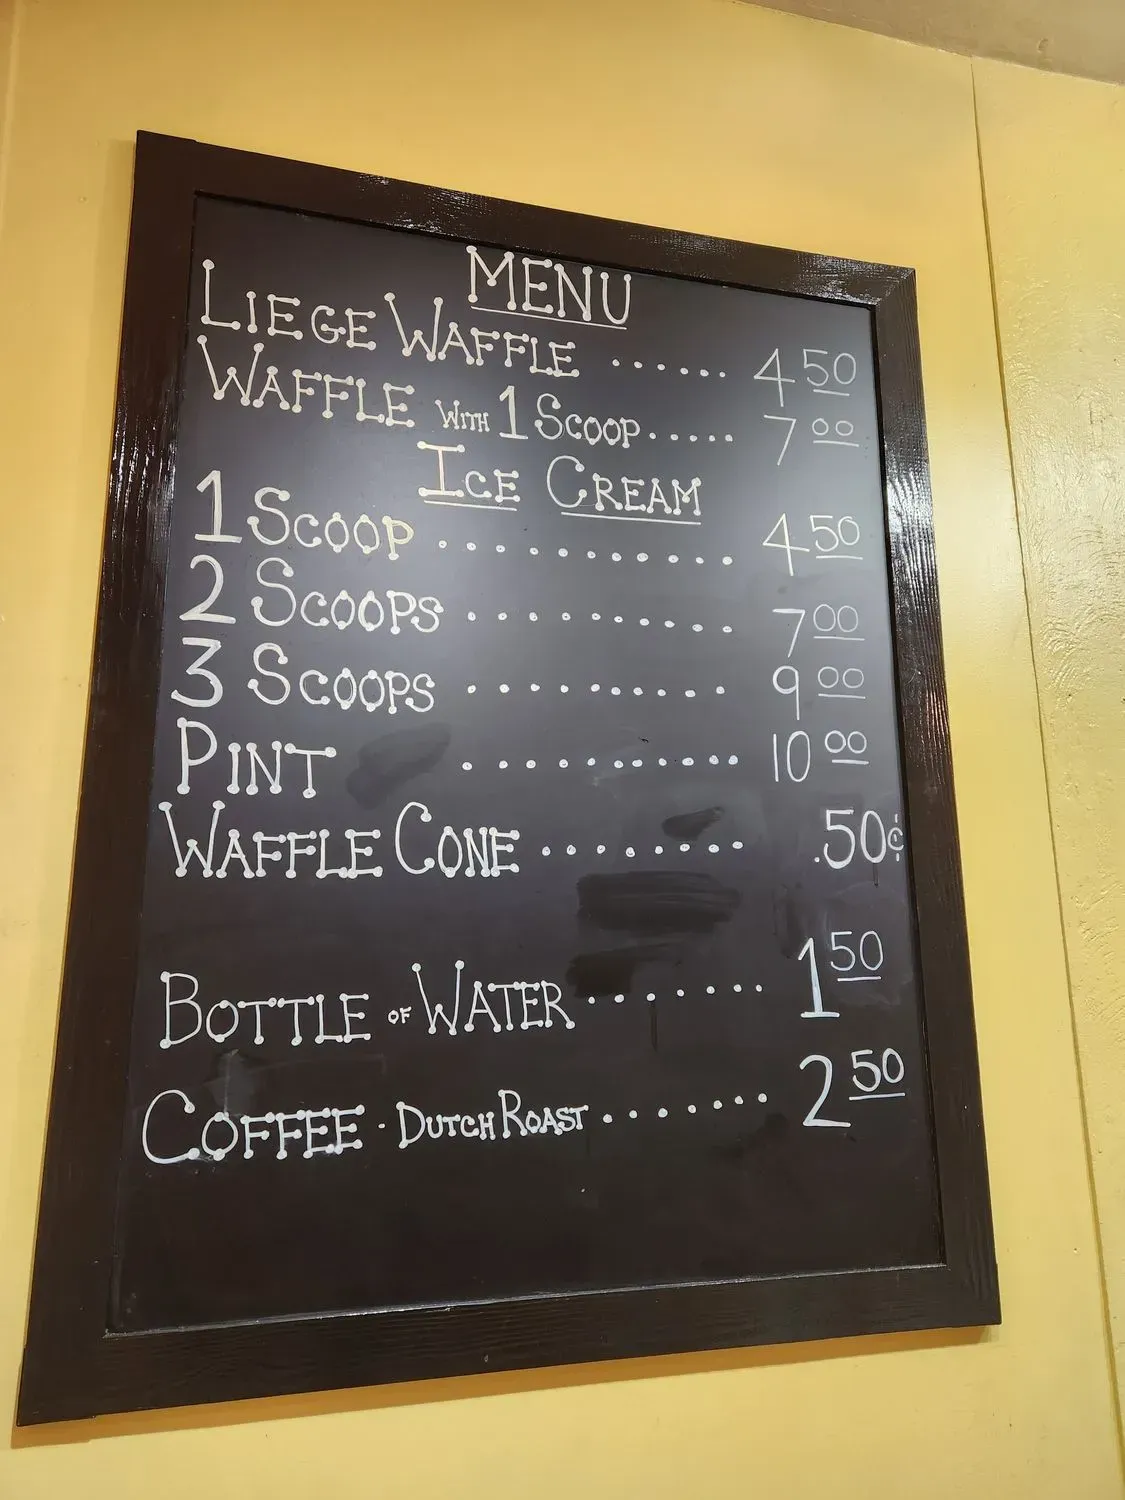 MENU
LIEGE WAFFLE ...... 4 50
WAFFLE WITH 1 SCOOP..... 7 00
ICE CREAM
1 SCOOP .......... 4 50
2 SCOOPS .......... 7 00
3 SCOOPS .......... 9 00
PINT .......... 10 00
WAFFLE CONE ........ .50¢
BOTTLE OF WATER ....... 1 50
COFFEE · DUTCH ROAST ....... 2 50